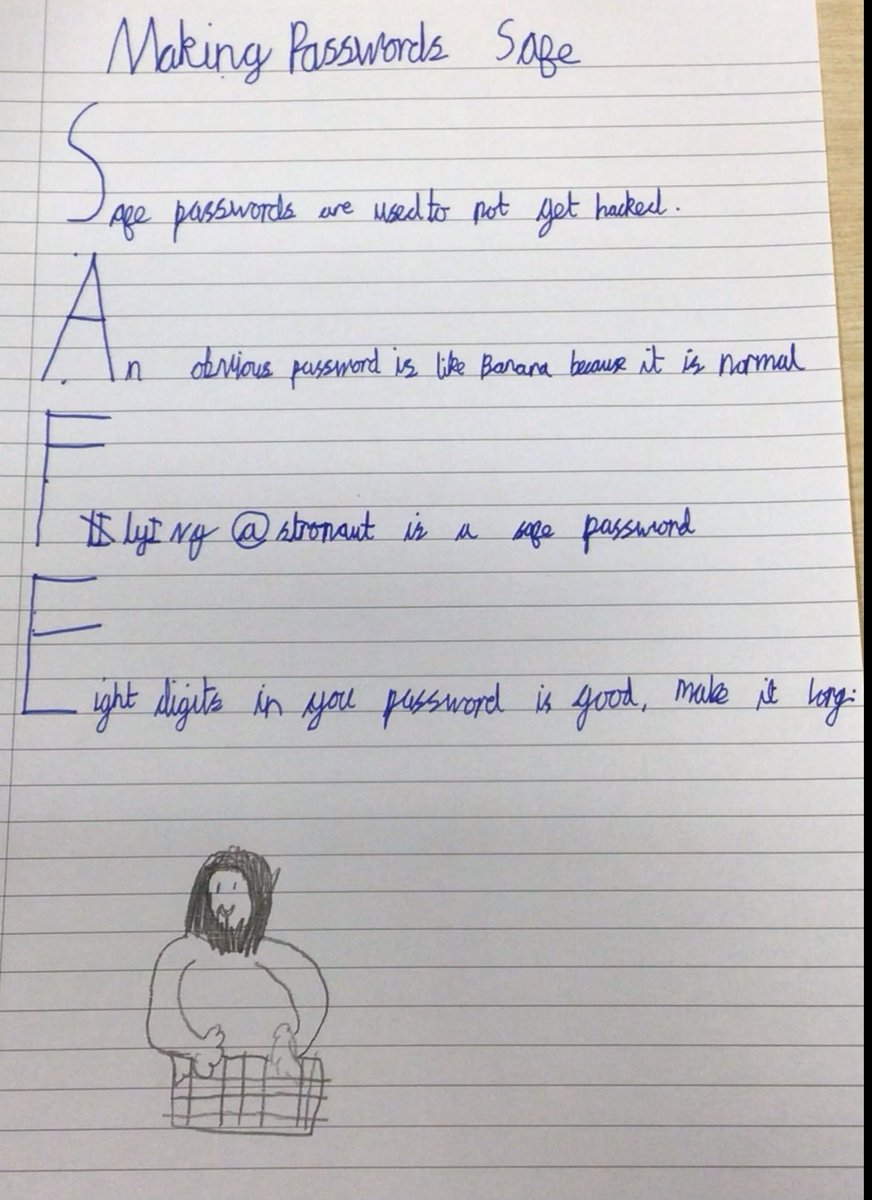 Making Passwords Safe
Safe passwords are used to not get hacked.
An obvious password is like Banana because it is normal
FlyINg @stronaut is a safe password
Eight digits in you password is good, make it long.